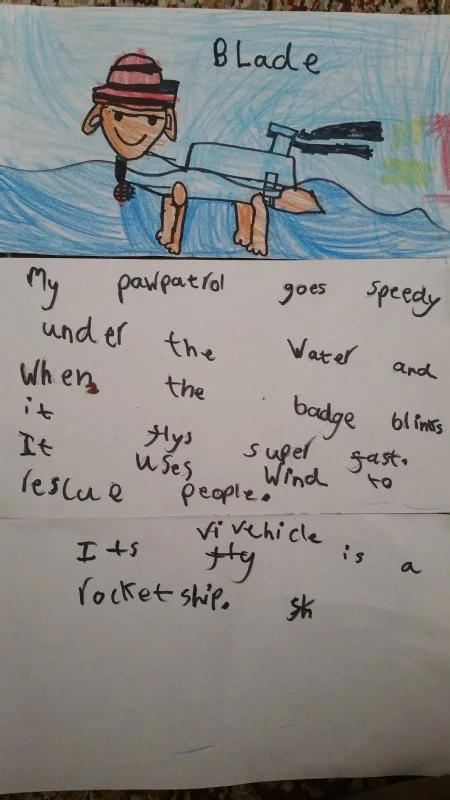 BLade
My pawpatrol goes speedy
under the Water and
When the badge blinks
it flys super fast.
It uses Wind to
rescue people.
Its vivehicle is a
rocket ship.